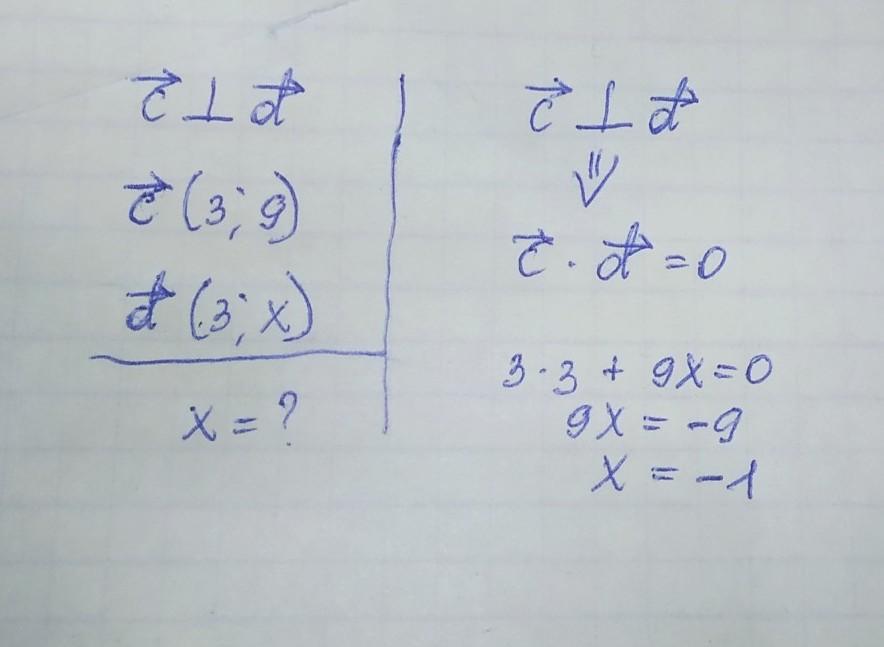 c⃗ ⊥ d⃗
c⃗ (3; 9)
d⃗ (3; x)
x = ?
c⃗ ⊥ d⃗
⇓
c⃗ · d⃗ = 0
3 · 3 + 9x = 0
9x = -9
x = -1